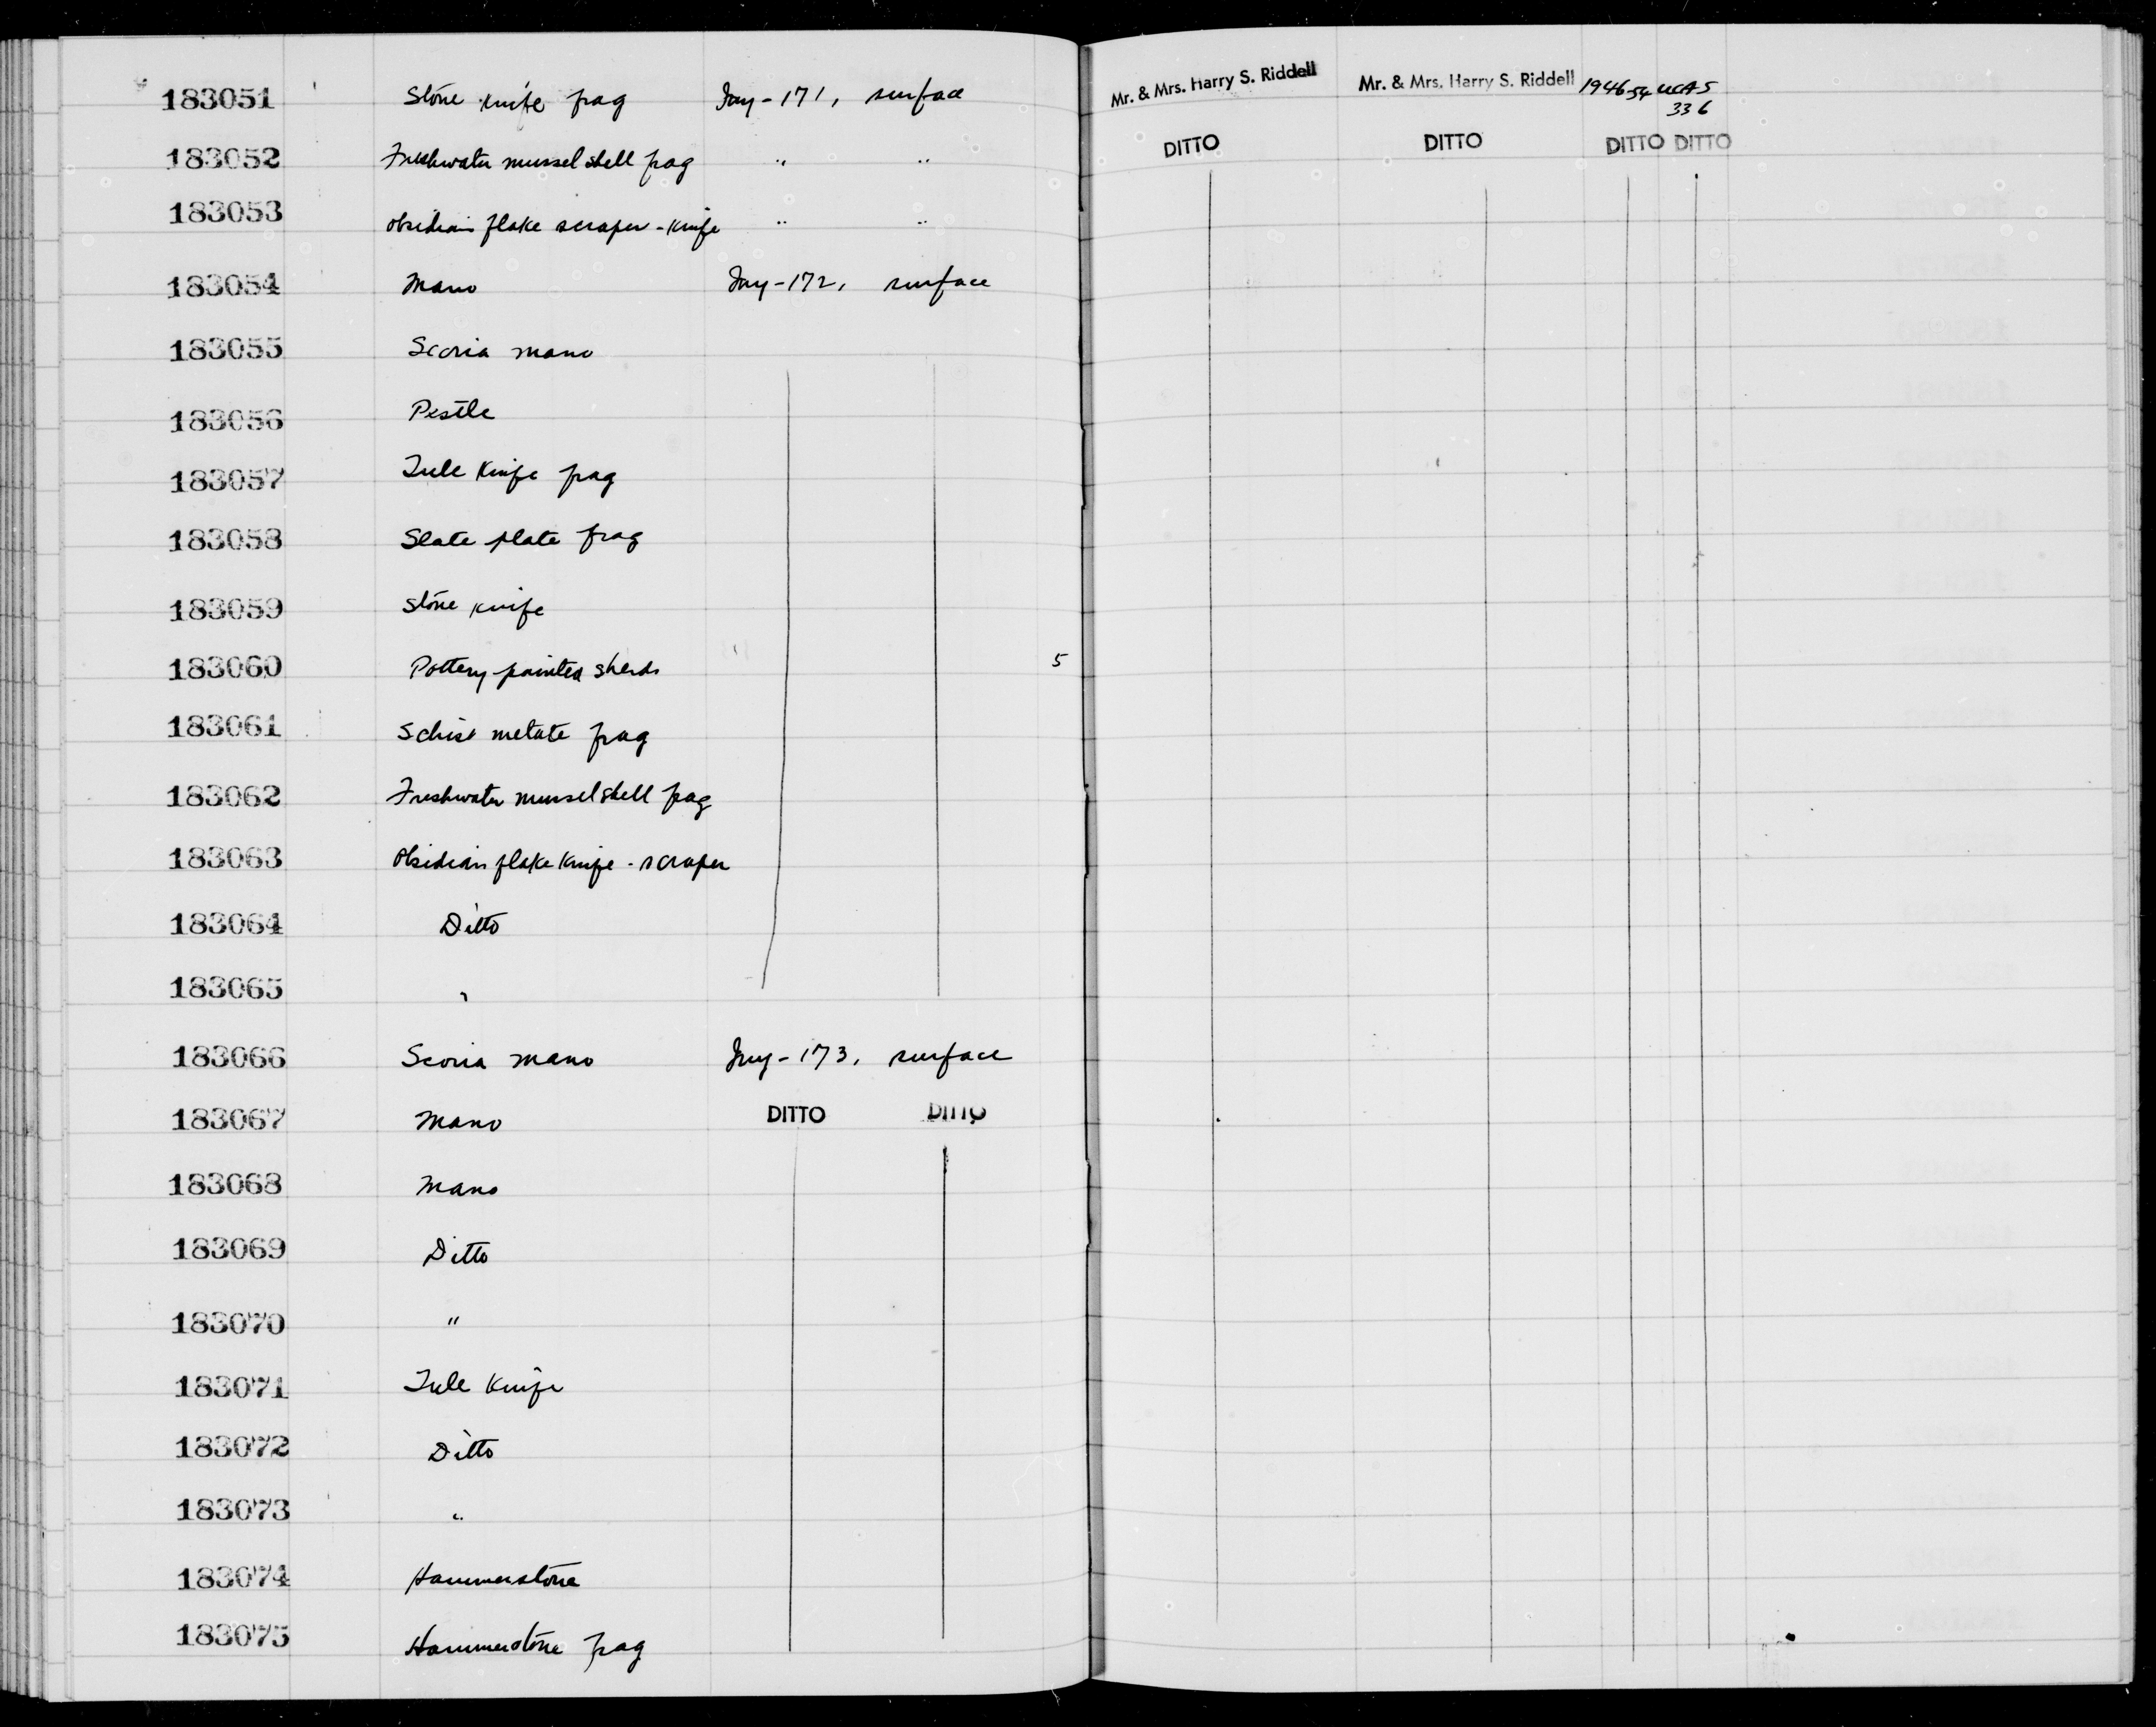 183051 Stone knife frag Iny-171, surface Mr. & Mrs. Harry S. Riddell Mr. & Mrs. Harry S. Riddell 1946 54 UCAS
336
183052 Freshwater mussel shell frag " " DITTO DITTO DITTO DITTO
183053 Obsidian flake scraper-knife " "
183054 Mano Iny-172, surface
183055 Scoria mano
183056 Pestle
183057 Tule knife frag
183058 Slate plate frag
183059 Stone knife
183060 Pottery-painted sherds 5
183061 Schist metate frag
183062 Freshwater mussel shell frag
183063 Obsidian flake knife-scraper
183064 Ditto
183065 "
183066 Scoria mano Iny-173, surface
183067 Mano DITTO DITTO
183068 Mano
183069 Ditto
183070 "
183071 Tule knife
183072 Ditto
183073 "
183074 Hammerstone
183075 Hammerstone frag